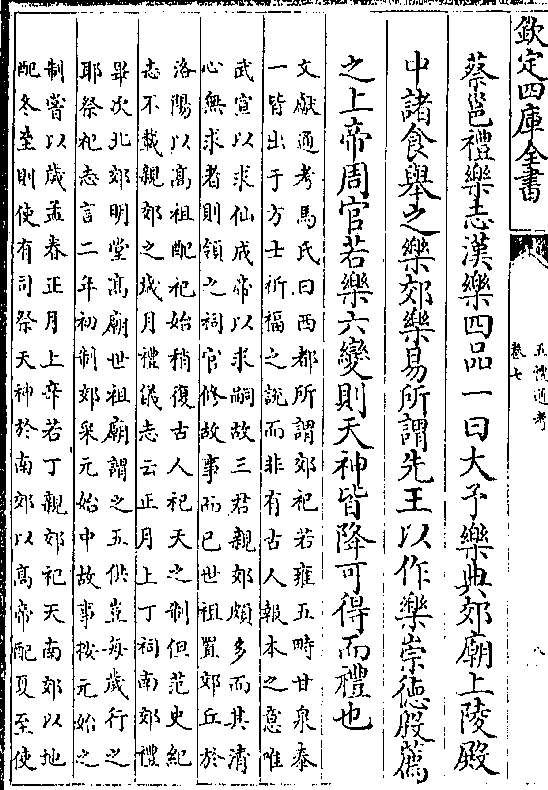 欽定四庫全書
五禮通考
卷七
八
蔡邕禮樂志漢樂四品一曰大予樂典郊廟上陵殿
中諸食舉之樂郊樂易所謂先王以作樂崇德殷薦
之上帝周官若樂六變則天神皆降可得而禮也
文獻通考馬氏曰西都所謂郊祀若雍五畤甘泉泰
一皆出于方士祈福之説而非有古人報本之意唯
武宣以求仙成帝以求嗣故三君親郊頗多而其清
心無求者則領之祠官修故事而已世祖置郊丘於
洛陽以髙祖配祀始稍復古人祀天之制但范史紀
志不載親郊之歳月禮儀志云正月上丁祠南郊禮
畢次北郊明堂髙廟世祖廟謂之五供豈每歳行之
耶祭祀志言二年初制郊采元始中故事按元始之
制嘗以歳孟春正月上辛若丁親郊祀天南郊以地
配冬至則使有司祭天神於南郊以髙帝配夏至使